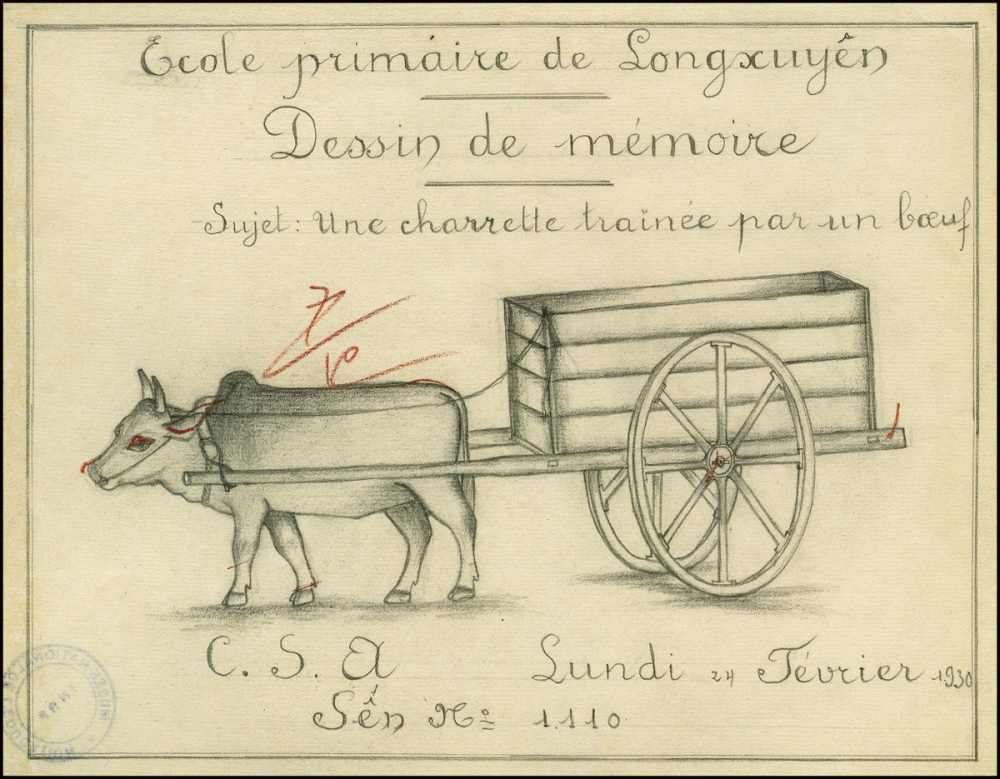 Ecole primáire de Longxuyên
Dessin de mémoire
Sujet: Une charrette traînée par un bœuf
7/10
C. S. A Lundi 24 Février 1930
Sến Nº 1.110